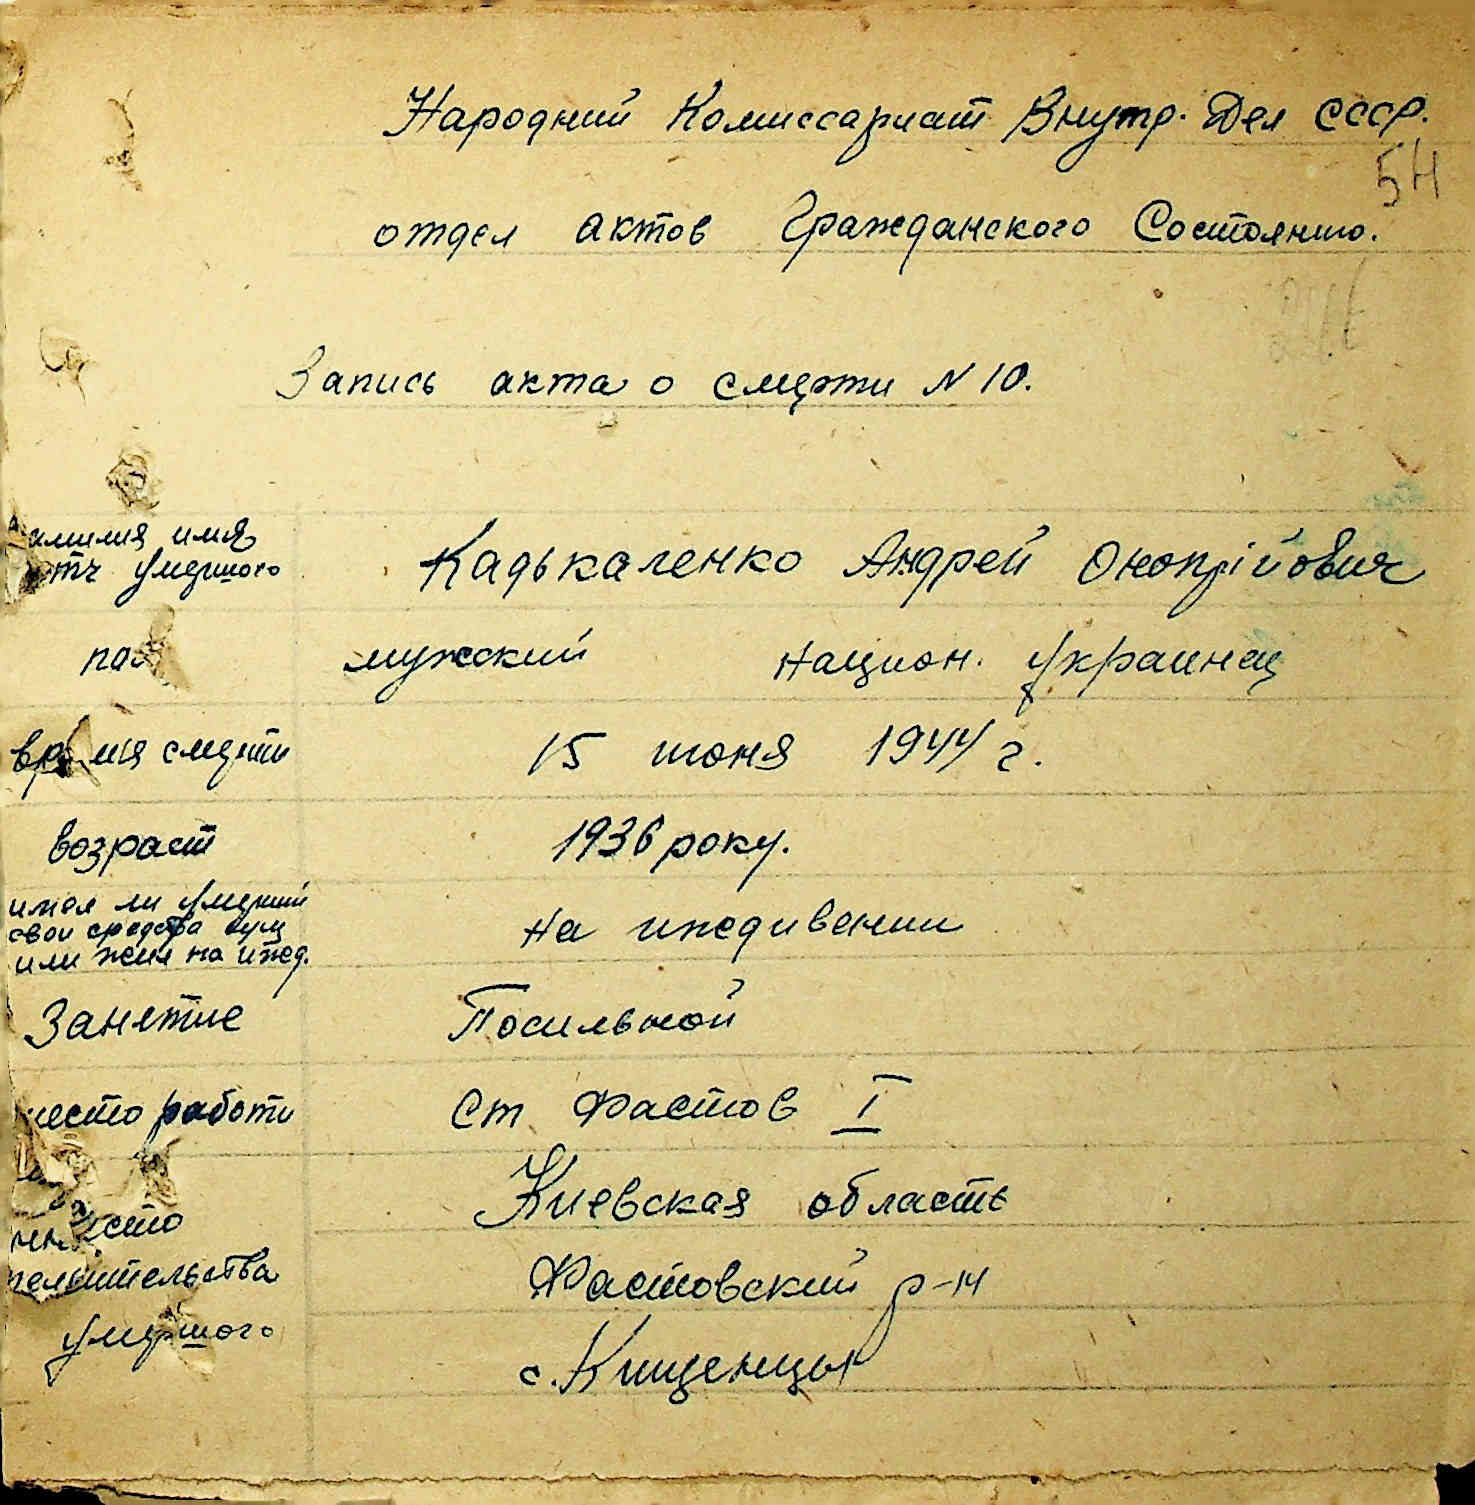 Народний Комиссариат Внутр. Дел СССР.
54
отдел актов Гражданского Состоянию.
Запись акта о смерти N 10.
амилия имя
отч умершого
Кадькаленко Андрей Онопрійович
пол мужский национ. украинец
время смерти 15 июня 1944 г.
возраст 1936 року.
имел ли умерший
свои средства сущ
или жил на ижд.
на иждивении
Занятие Посильной
место работи ст Фастов I
место
жительства
умершого
Киевская область
Фастовский р-н
с. Кищенцы